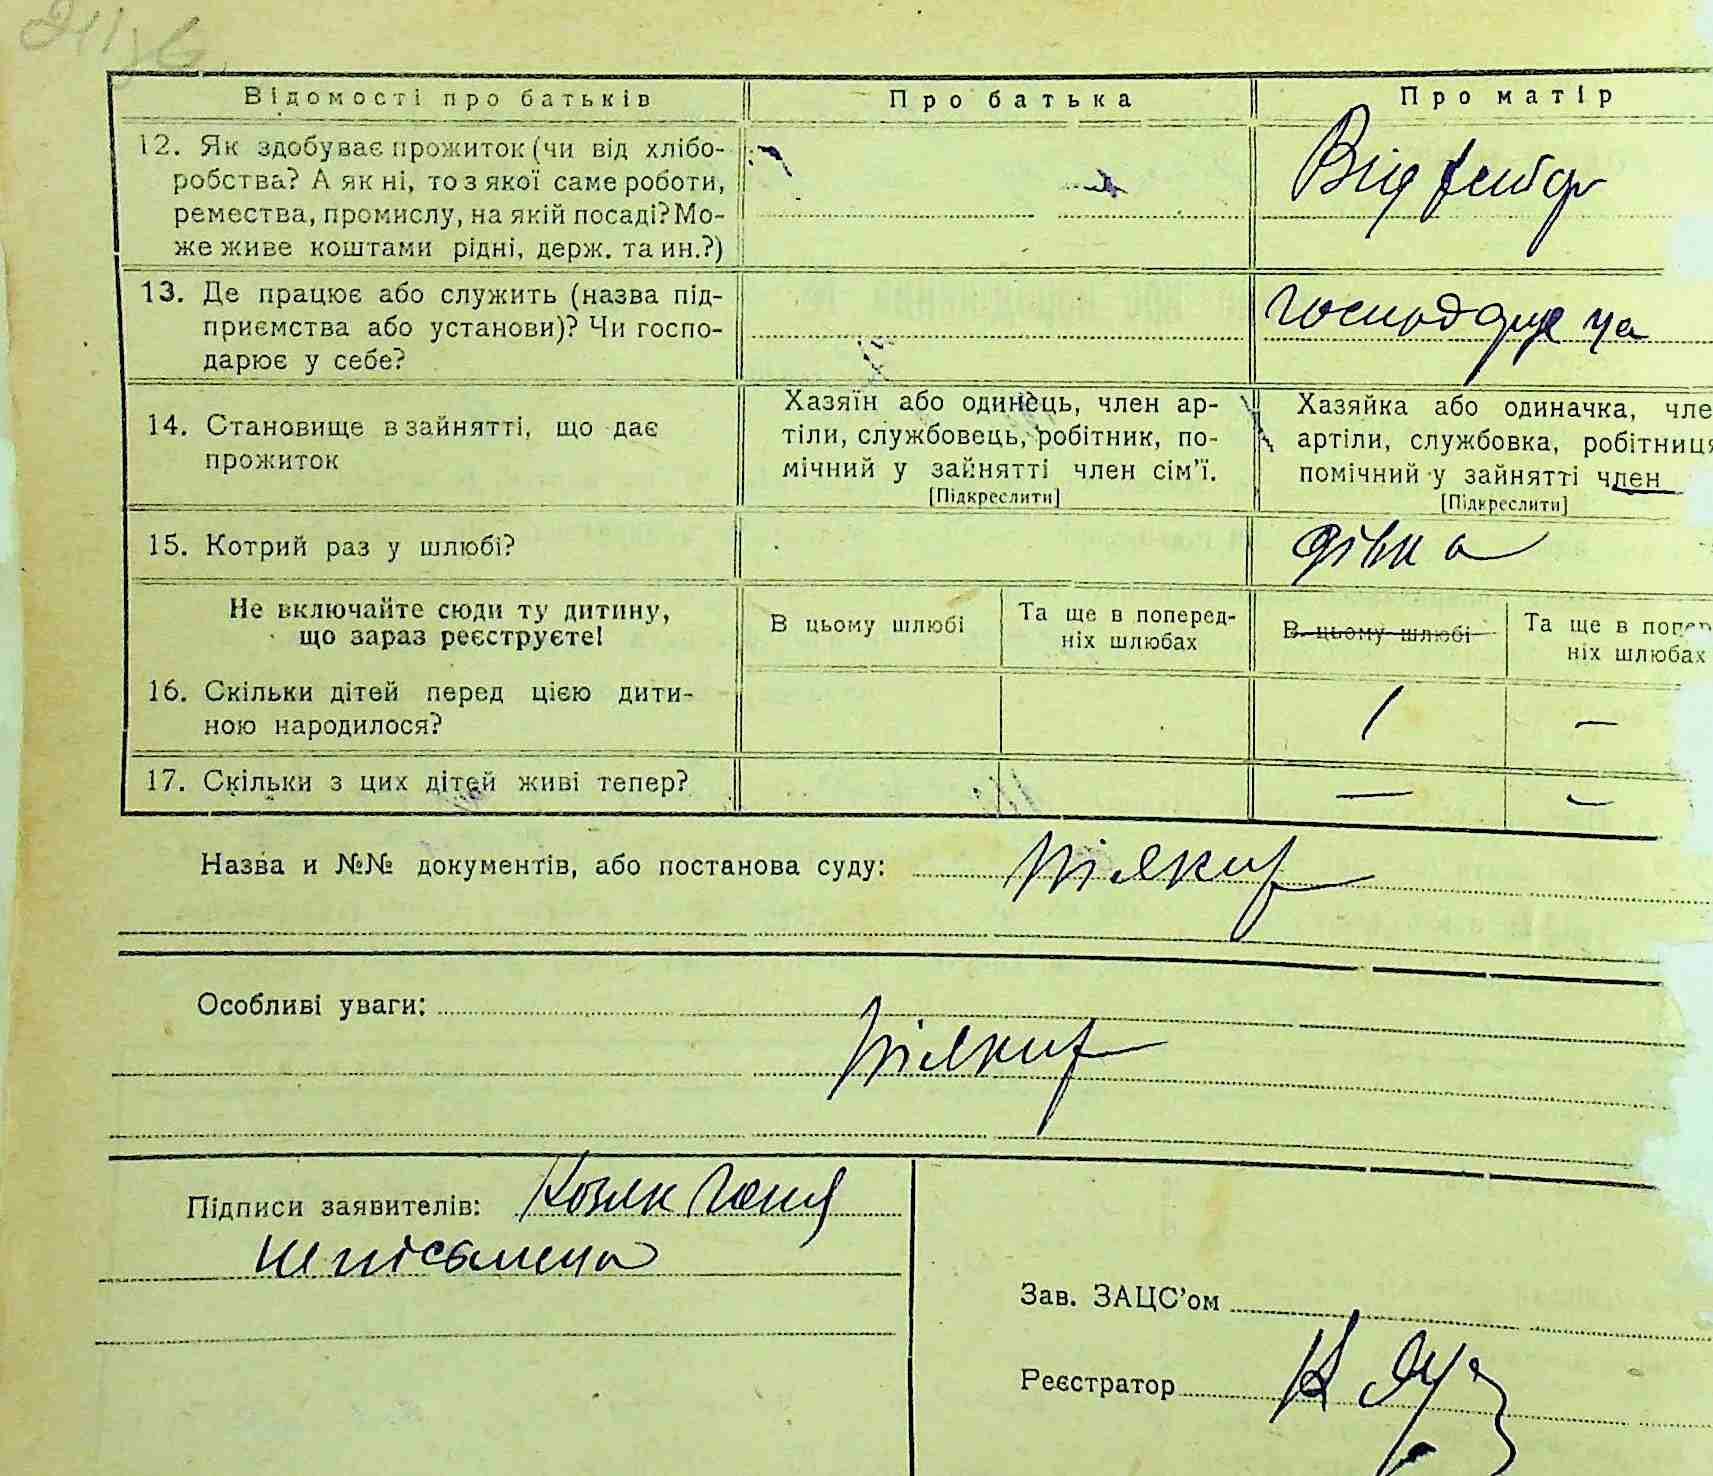 Відомості про батьків Про батька Про матір
12. Як здобуває прожиток (чи від хлібо-
робства? А як ні, то з якої саме роботи,
ремества, промислу, на якій посаді? Мо-
же живе коштами рідні, держ. та ин.?)
Від
13. Де працює або служить (назва під-
приємства або установи)? Чи госпо-
дарює у себе?
14. Становище в зайнятті, що дає
прожиток
Хазяїн або одинець, член ар-
тіли, службовець, робітник, по-
мічний у зайнятті член сім’ї.
[Підкреслити]
Хазяйка або одиначка, чле
артіли, службовка, робітниця
помічний у зайнятті член
[Підкреслити]
15. Котрий раз у шлюбі?
дівка
Не включайте сюди ту дитину,
що зараз реєструєте!
В цьому шлюбі
Та ще в поперед-
ніх шлюбах
В цьому шлюбі
Та ще в попер
ніх шлюбах
16. Скільки дітей перед цією дити-
ною народилося?
1 —
17. Скільки з цих дітей живі тепер?
— —
Назва и №№ документів, або постанова суду: ніяких
Особливі уваги:
ніяких
Підписи заявителів: Козак Ганя
неписьмена
Зав. ЗАЦС’ом
Реєстратор